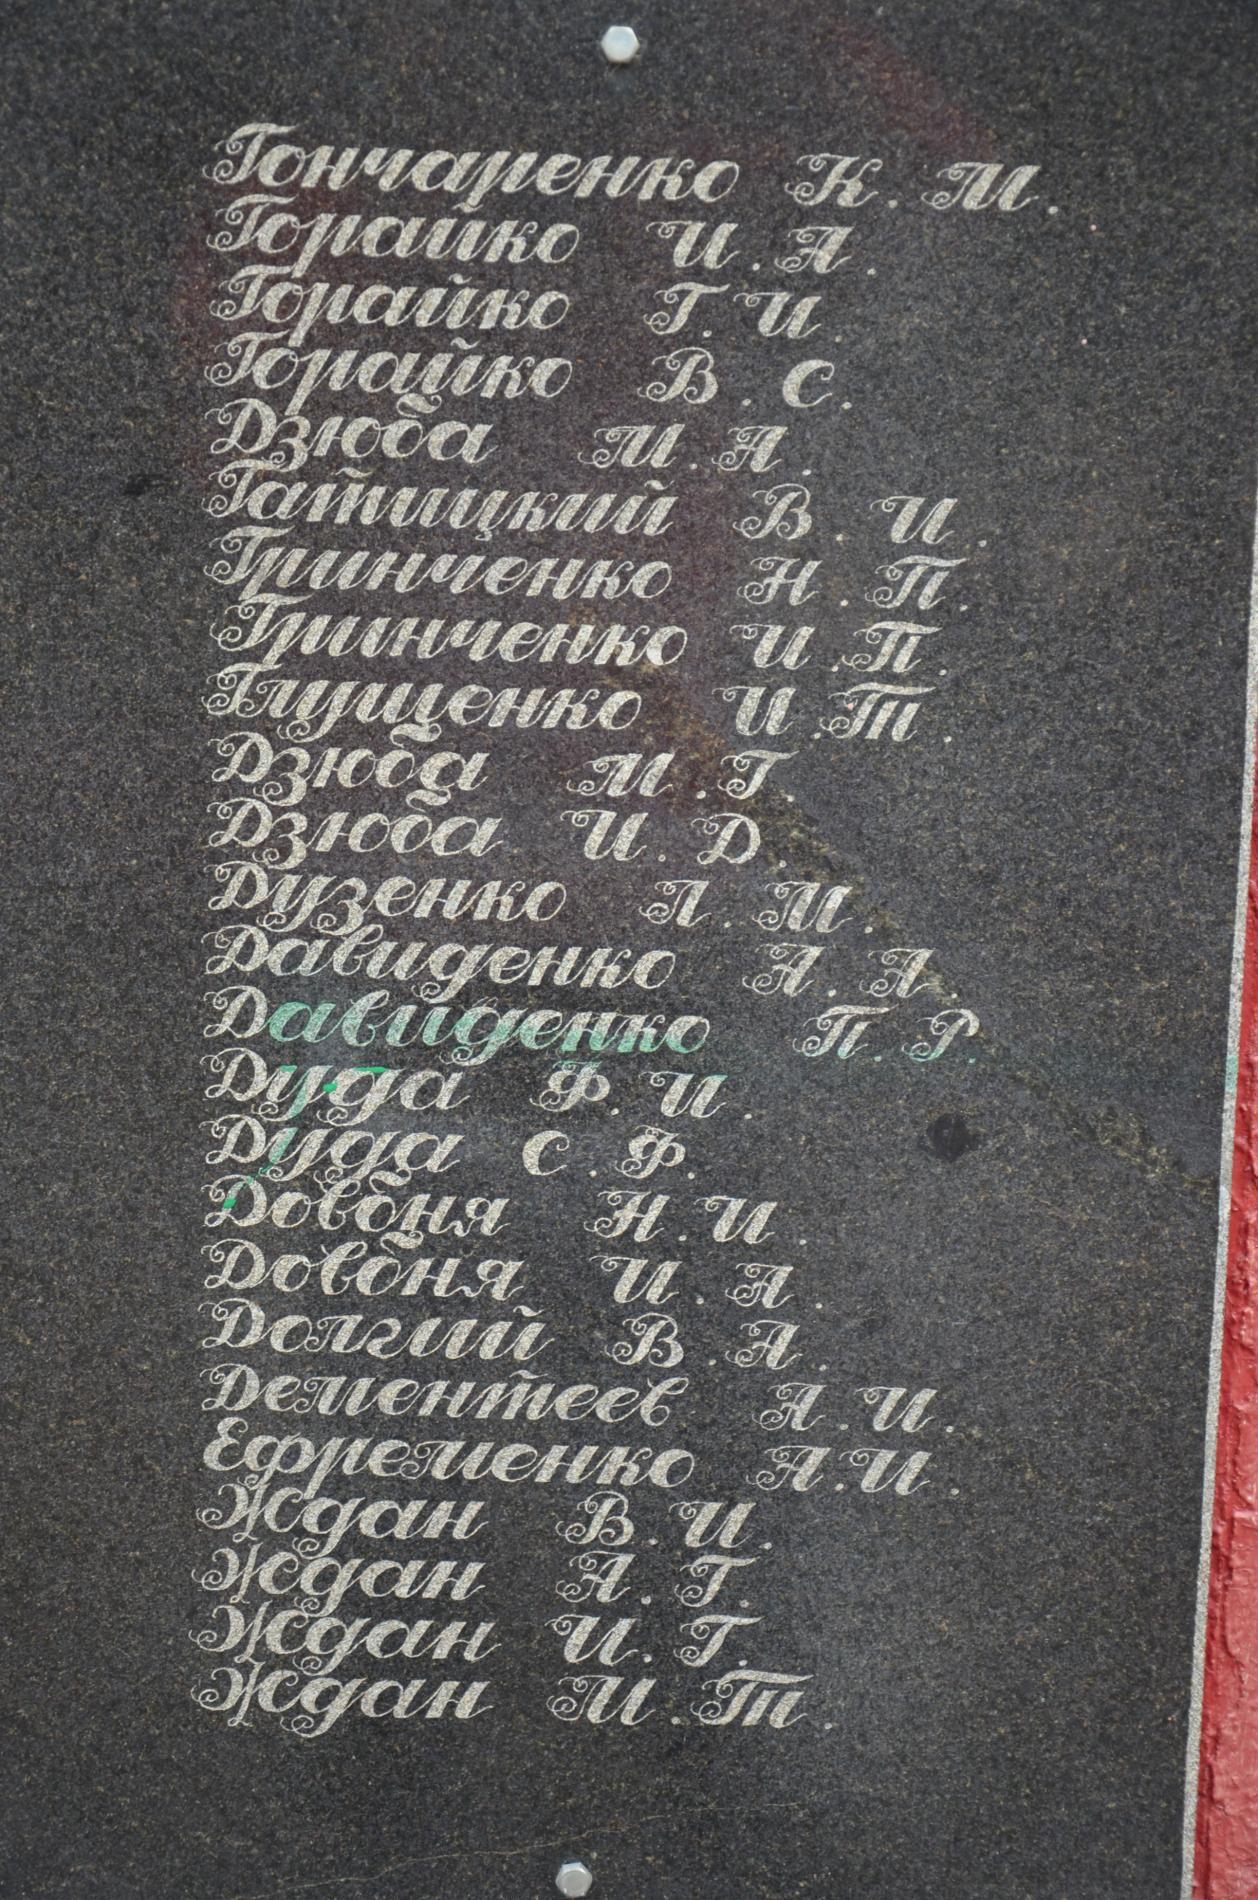 Гончаренко К. М.
Горайко И. А.
Горайко Г. И.
Горайко В. С.
Дзюба М. А.
Гатицкий В. И.
Гринченко Н. П.
Гринченко И. П.
Глущенко И. Т.
Дзюба М. Г.
Дзюба И. Д.
Дузенко Л. М.
Давиденко А. А.
Давиденко П. Р.
Дуда Ф. И.
Дуда С. Ф.
Довбня Н. И.
Довбня И. А.
Долгий В. А.
Дементеев А. И.
Ефременко А. И.
Ждан В. И.
Ждан А. Г.
Ждан И. Г.
Ждан М. Т.